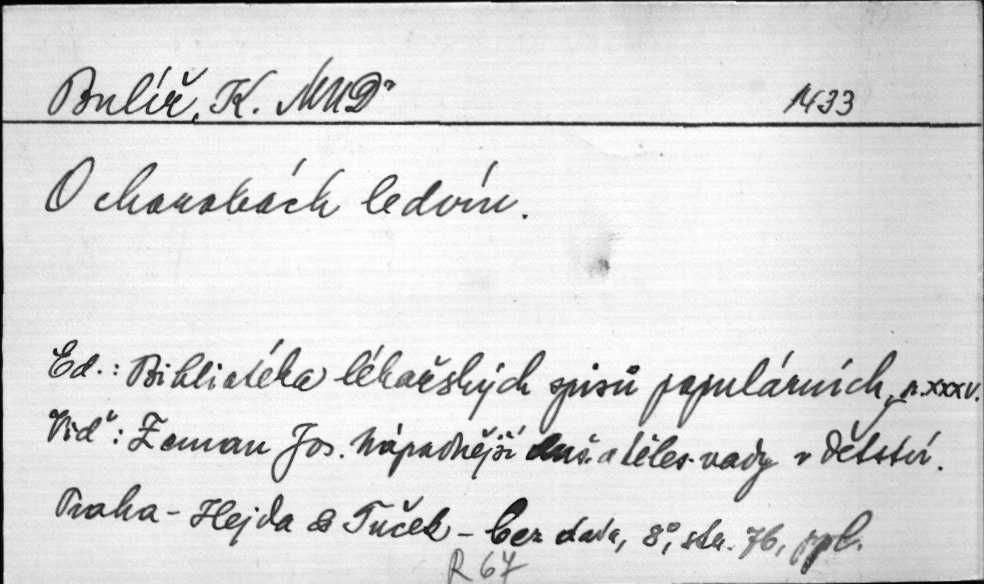 Bulíř, K. MUDr 1433
O chorobách ledvin.
Ed.: Bibliotéka lékařských spisů populárních, n. XXXV.
Viď: Zeman Jos. Nápadnější duš. a těles. vady v dětství.
Praha - Hejda & Tuček - bez data, 8°, str. 76, ppl.
R 67